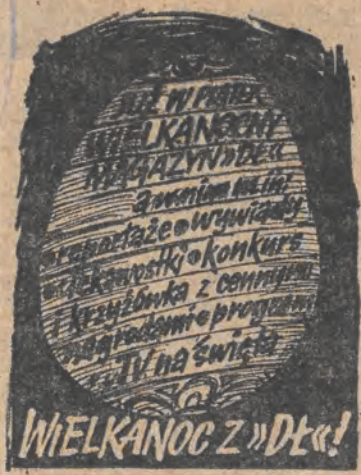 JUŻ W PIĄTEK
WIELKANOCNY
MAGAZYN »DŁ«
a w nim m. in:
•reportaże•wywiady
•ciekawostki•konkurs
i krzyżówka z cennymi
nagrodami•program
TV na święta
WIELKANOC Z »DŁ«!